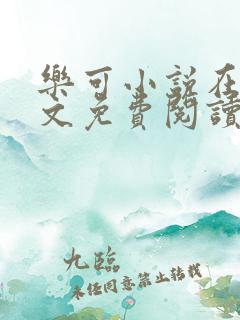 樂可小說在
文免費閱讀
九臨
未经同意禁止转载